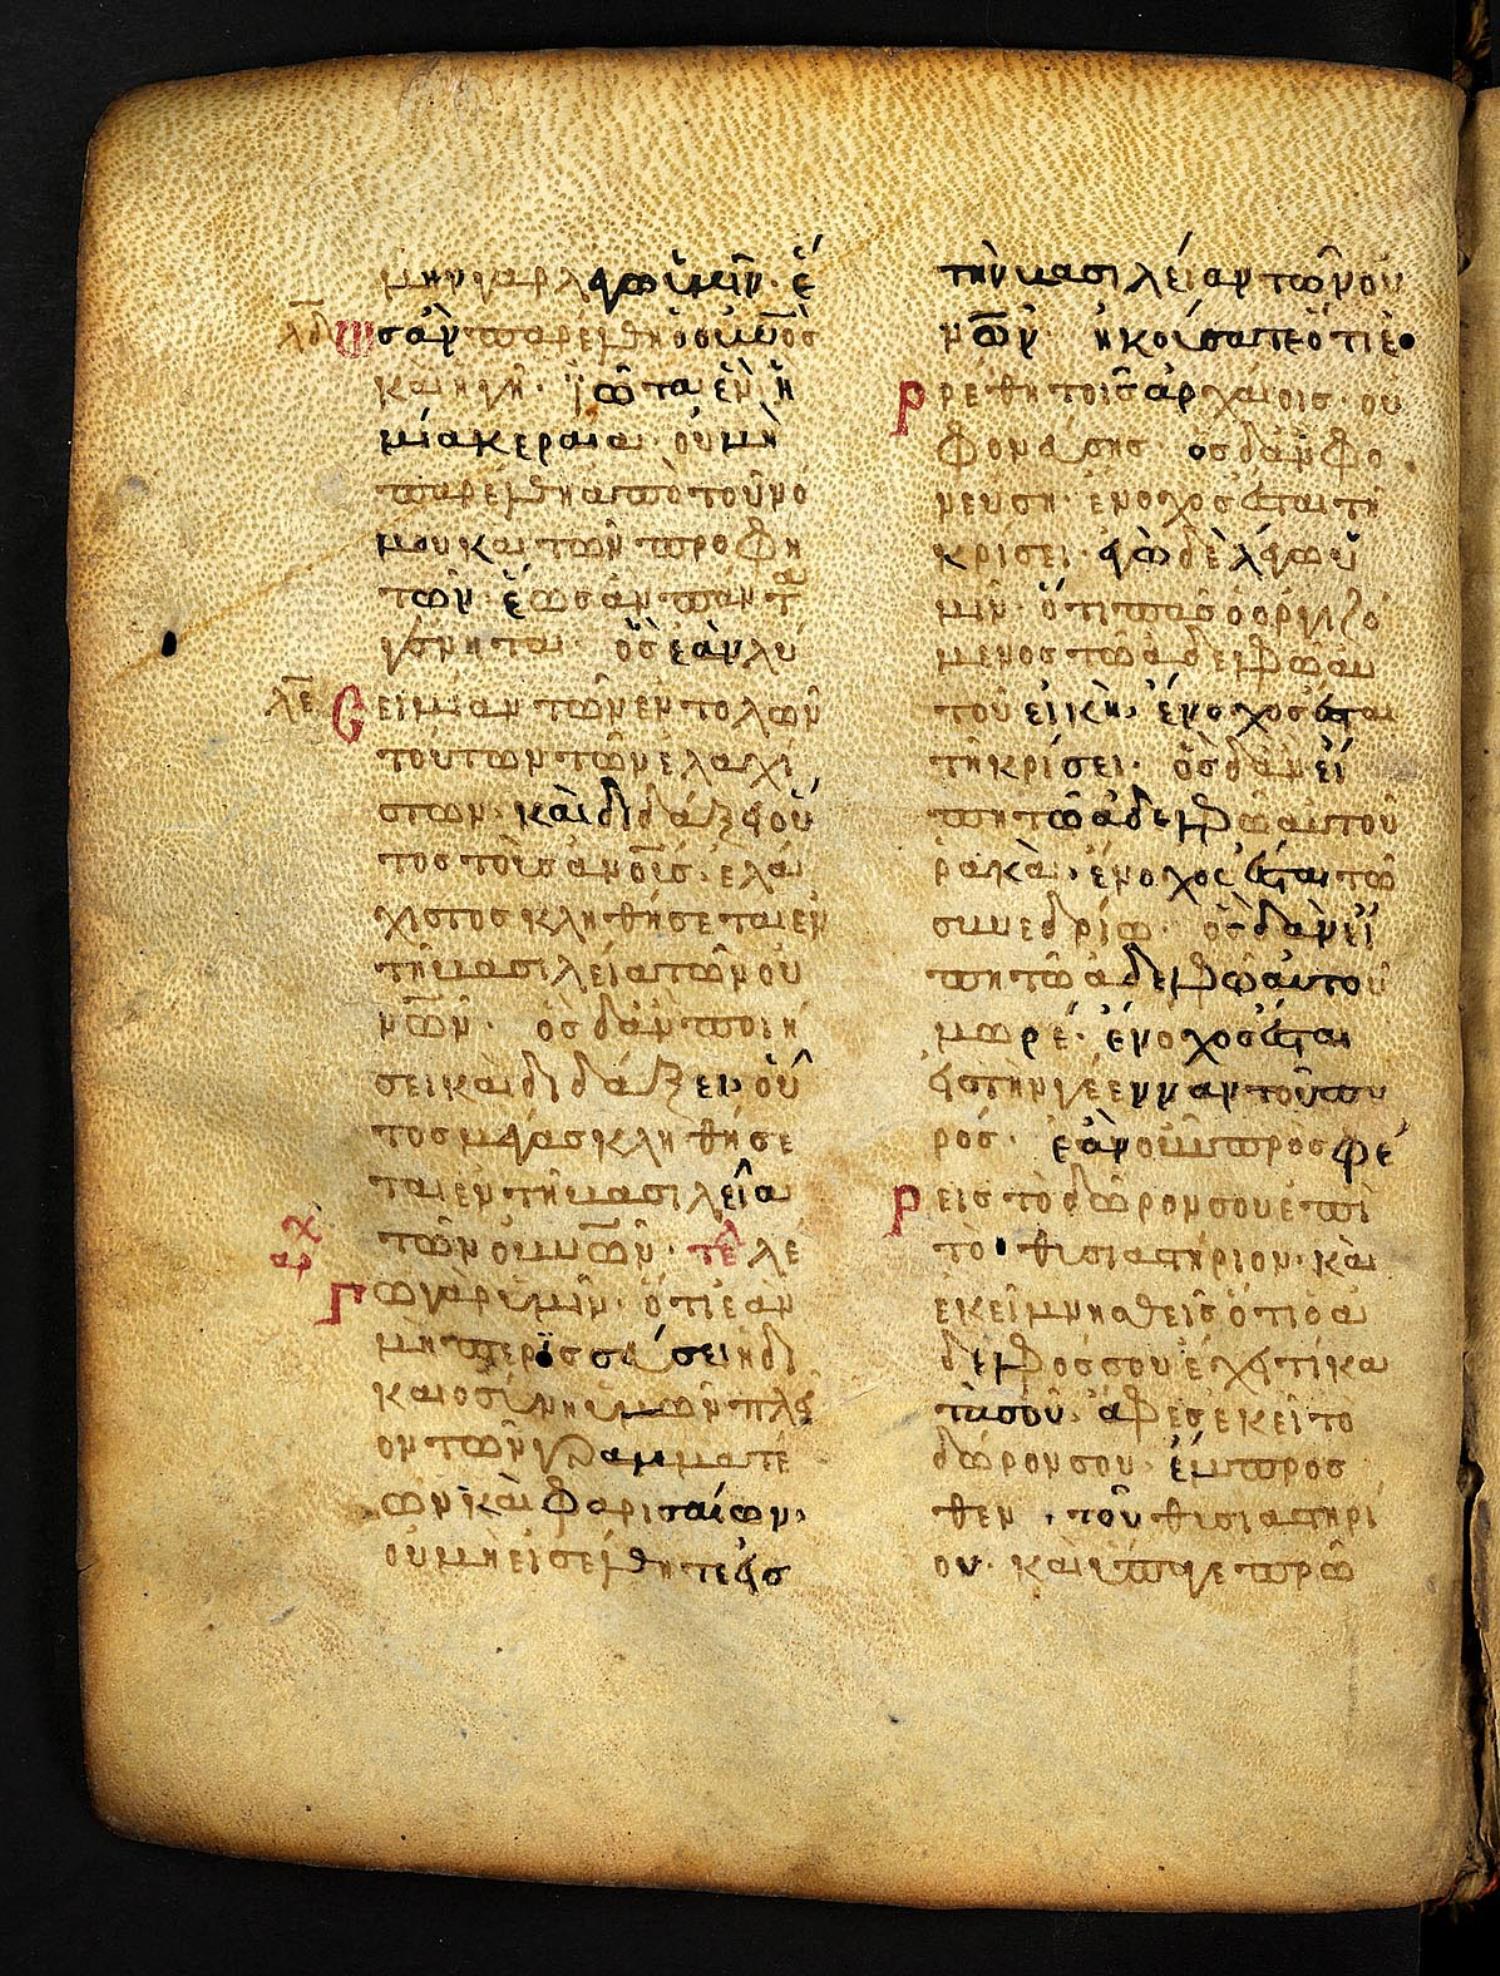 μὴν γὰρ λέγω ὑμῖν· ἕ
λδ ωσ ἂν παρέλθη ὁ οὐνοσ
καὶ ἡ γῆ· ϊῶτα ἓν ἢ
μία κεραία· οὐ μὴ
παρέλθη ἀπὸ τοῦ νό
μου καὶ τῶν προφη
τῶν· ἕωσ ἂν πάντα
γένηται· ὃσ ἐὰν λύ
λε σει μίαν τῶν ἐντολῶν
τούτων τῶν ἐλαχί
στων· καὶ διδάξει οὕ
τοσ τοὺσ ἀνοισ· ἐλά
χιστοσ κληθήσεται ἐν
τῆ βασιλεία τῶν οὐ
νῶν· ὃσ δ' ἂν ποιή
σει καὶ διδάξει· οὗ
τοσ μέγασ κληθήσε
ται ἐν τῆ βασιλεία
τῶν οὐνῶν· τελ λέ
γω γὰρ ὑμῖν· ὅτι ἐὰν
μὴ περισσεύσει ἡ δι
καιοσύνη ὑμῶν πλεῖ
ον τῶν γραμματέ
ων καὶ φαρισαίων·
οὐ μὴ εἰσέλθητε εἰσ
τὴν βασιλείαν τῶν οὐ
νῶν· ἠκούσατε ὅτι ἐρ
ρέθη τοῖσ ἀρχαίοισ· οὐ
φονεύσησ· ὃσ δ' ἂν φο
νεύση· ἔνοχοσ ἔσται τῆ
κρίσει· ἐγὼ δὲ λέγω ὑ
μῖν· ὅτι πᾶσ ὁ ὀργιζό
μενοσ τῶ ἀδελφῶ αὐ
τοῦ εἰκῆ· ἔνοχοσ ἔσται
τῆ κρίσει· ὃσ δ' ἂν εἴ
πη τῶ ἀδελφῶ αὐτοῦ
ρακὰ· ἔνοχοσ ἔσται τῶ
συνεδρίω· ὃσ δ' ἂν εἴ
πη τῶ ἀδελφῶ αὐτοῦ
μωρέ· ἔνοχοσ ἔσται
εἰσ τὴν γέενναν τοῦ πυ
ρόσ· ἐὰν οὖν προσφέ
ρεισ τὸ δῶρον σου ἐπὶ
τὸ θυσιαστήριον· καὶ
ἐκεῖ μνησθεῖσ ὅτι ὁ ἀ
δελφόσ σου ἔχει τι κα
τὰ σοῦ· ἄφεσ ἐκεῖ τὸ
δῶρον σου· ἔμπροσ
θεν τοῦ θυσιαστηρί
ου· καὶ ὕπαγε πρῶ